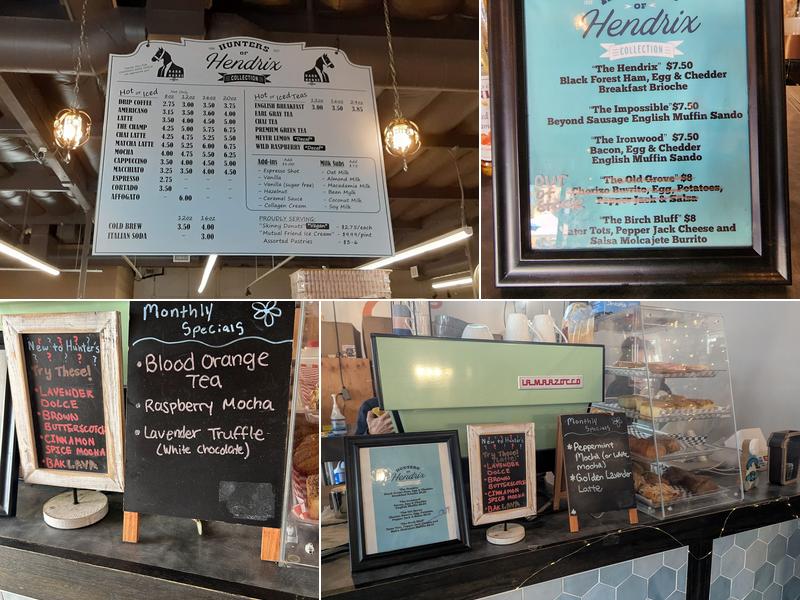 HUNTERS
OF
Hendrix
COLLECTION
DARK HORSE
DARK HORSE
Hot or Iced
Hot Only
8oz 12oz 16oz 20oz
DRIP COFFEE 2.75 3.00 3.50 3.75
AMERICANO 3.15 3.50 3.60 4.00
LATTE 3.50 4.00 4.50 5.00
THE CHAMP 4.25 5.00 5.75 6.75
CHAI LATTE 4.25 4.75 5.25 5.50
MATCHA LATTE 4.50 5.25 6.00 6.75
MOCHA 4.00 4.75 5.50 6.25
CAPPUCCINO 3.50 4.00 4.50 5.00
MACCHIATO 3.25 3.50 4.00 4.50
ESPRESSO 2.75 – – –
CORTADO 3.50 – – –
AFFOGATO – 6.00 – –
12oz 16oz
COLD BREW 3.50 4.00
ITALIAN SODA – 3.00
Hot or Iced Teas
12oz 16oz 20oz
ENGLISH BREAKFAST 3.00 3.50 3.85
EARL GRAY TEA
CHAI TEA
PREMIUM GREEN TEA
MEYER LEMON *Decaf*
WILD RASPBERRY *Decaf*
Add-ins Add
- Espresso Shot
- Vanilla
- Vanilla (sugar free)
- Hazelnut
- Caramel Sauce
- Collagen Cream
Milk Subs Add
- Oat Milk
- Almond Milk
- Macadamia Milk
- Bean Mylk
- Coconut Milk
- Soy Milk
PROUDLY SERVING:
"Skinny Donuts" *Vegan* - $2.75/each
"Mutual Friend Ice Cream" - $9.99/pint
Assorted Pastries - $3-6
Hendrix
COLLECTION
"The Hendrix" $7.50
Black Forest Ham, Egg & Cheddar
Breakfast Brioche
"The Impossible" $7.50
Beyond Sausage English Muffin Sando
"The Ironwood" $7.50
Bacon, Egg & Cheddar
English Muffin Sando
OUT OF STOCK
"The Old Grove" $8
Chorizo Burrito, Egg, Potatoes,
Pepper Jack & Salsa
"The Birch Bluff" $8
Tater Tots, Pepper Jack Cheese and
Salsa Molcajete Burrito
New to Hunter's
Try These!
• LAVENDER
DOLCE
• BROWN
BUTTERSCOTCH
• CINNAMON
SPICE MOCHA
• BAKLAVA
Monthly
Specials
• Blood Orange
Tea
• Raspberry Mocha
• Lavender Truffle
(White chocolate)
LA MARZOCCO
HUNTERS
OF
Hendrix
New to Hunter's
Try These!
Lattes:
• LAVENDER
DOLCE
• BROWN
BUTTERSCOTCH
• CINNAMON
SPICE MOCHA
• BAKLAVA
Monthly
Specials
* Peppermint
Mocha (or white
mocha)
* Golden Lavender
Latte